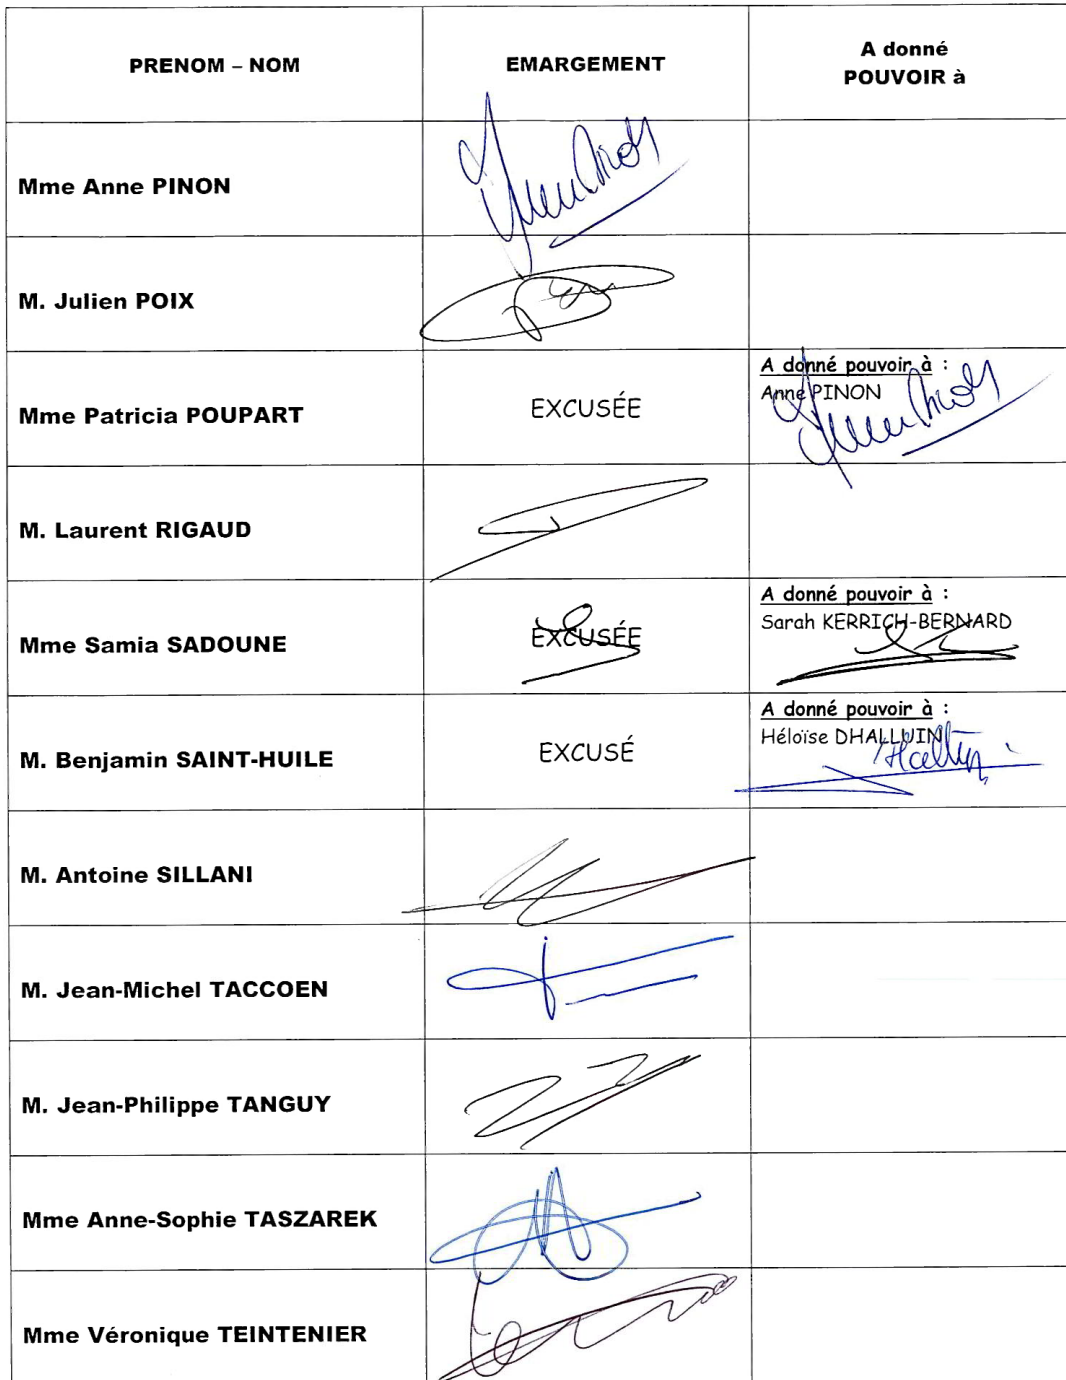 PRENOM – NOM
EMARGEMENT
A donné
POUVOIR à
Mme Anne PINON
M. Julien POIX
Mme Patricia POUPART
EXCUSÉE
A donné pouvoir à :
Anne PINON
M. Laurent RIGAUD
Mme Samia SADOUNE
EXCUSÉE
A donné pouvoir à :
Sarah KERRICH-BERNARD
M. Benjamin SAINT-HUILE
EXCUSÉ
A donné pouvoir à :
Héloïse DHALLUIN
M. Antoine SILLANI
M. Jean-Michel TACCOEN
M. Jean-Philippe TANGUY
Mme Anne-Sophie TASZAREK
Mme Véronique TEINTENIER